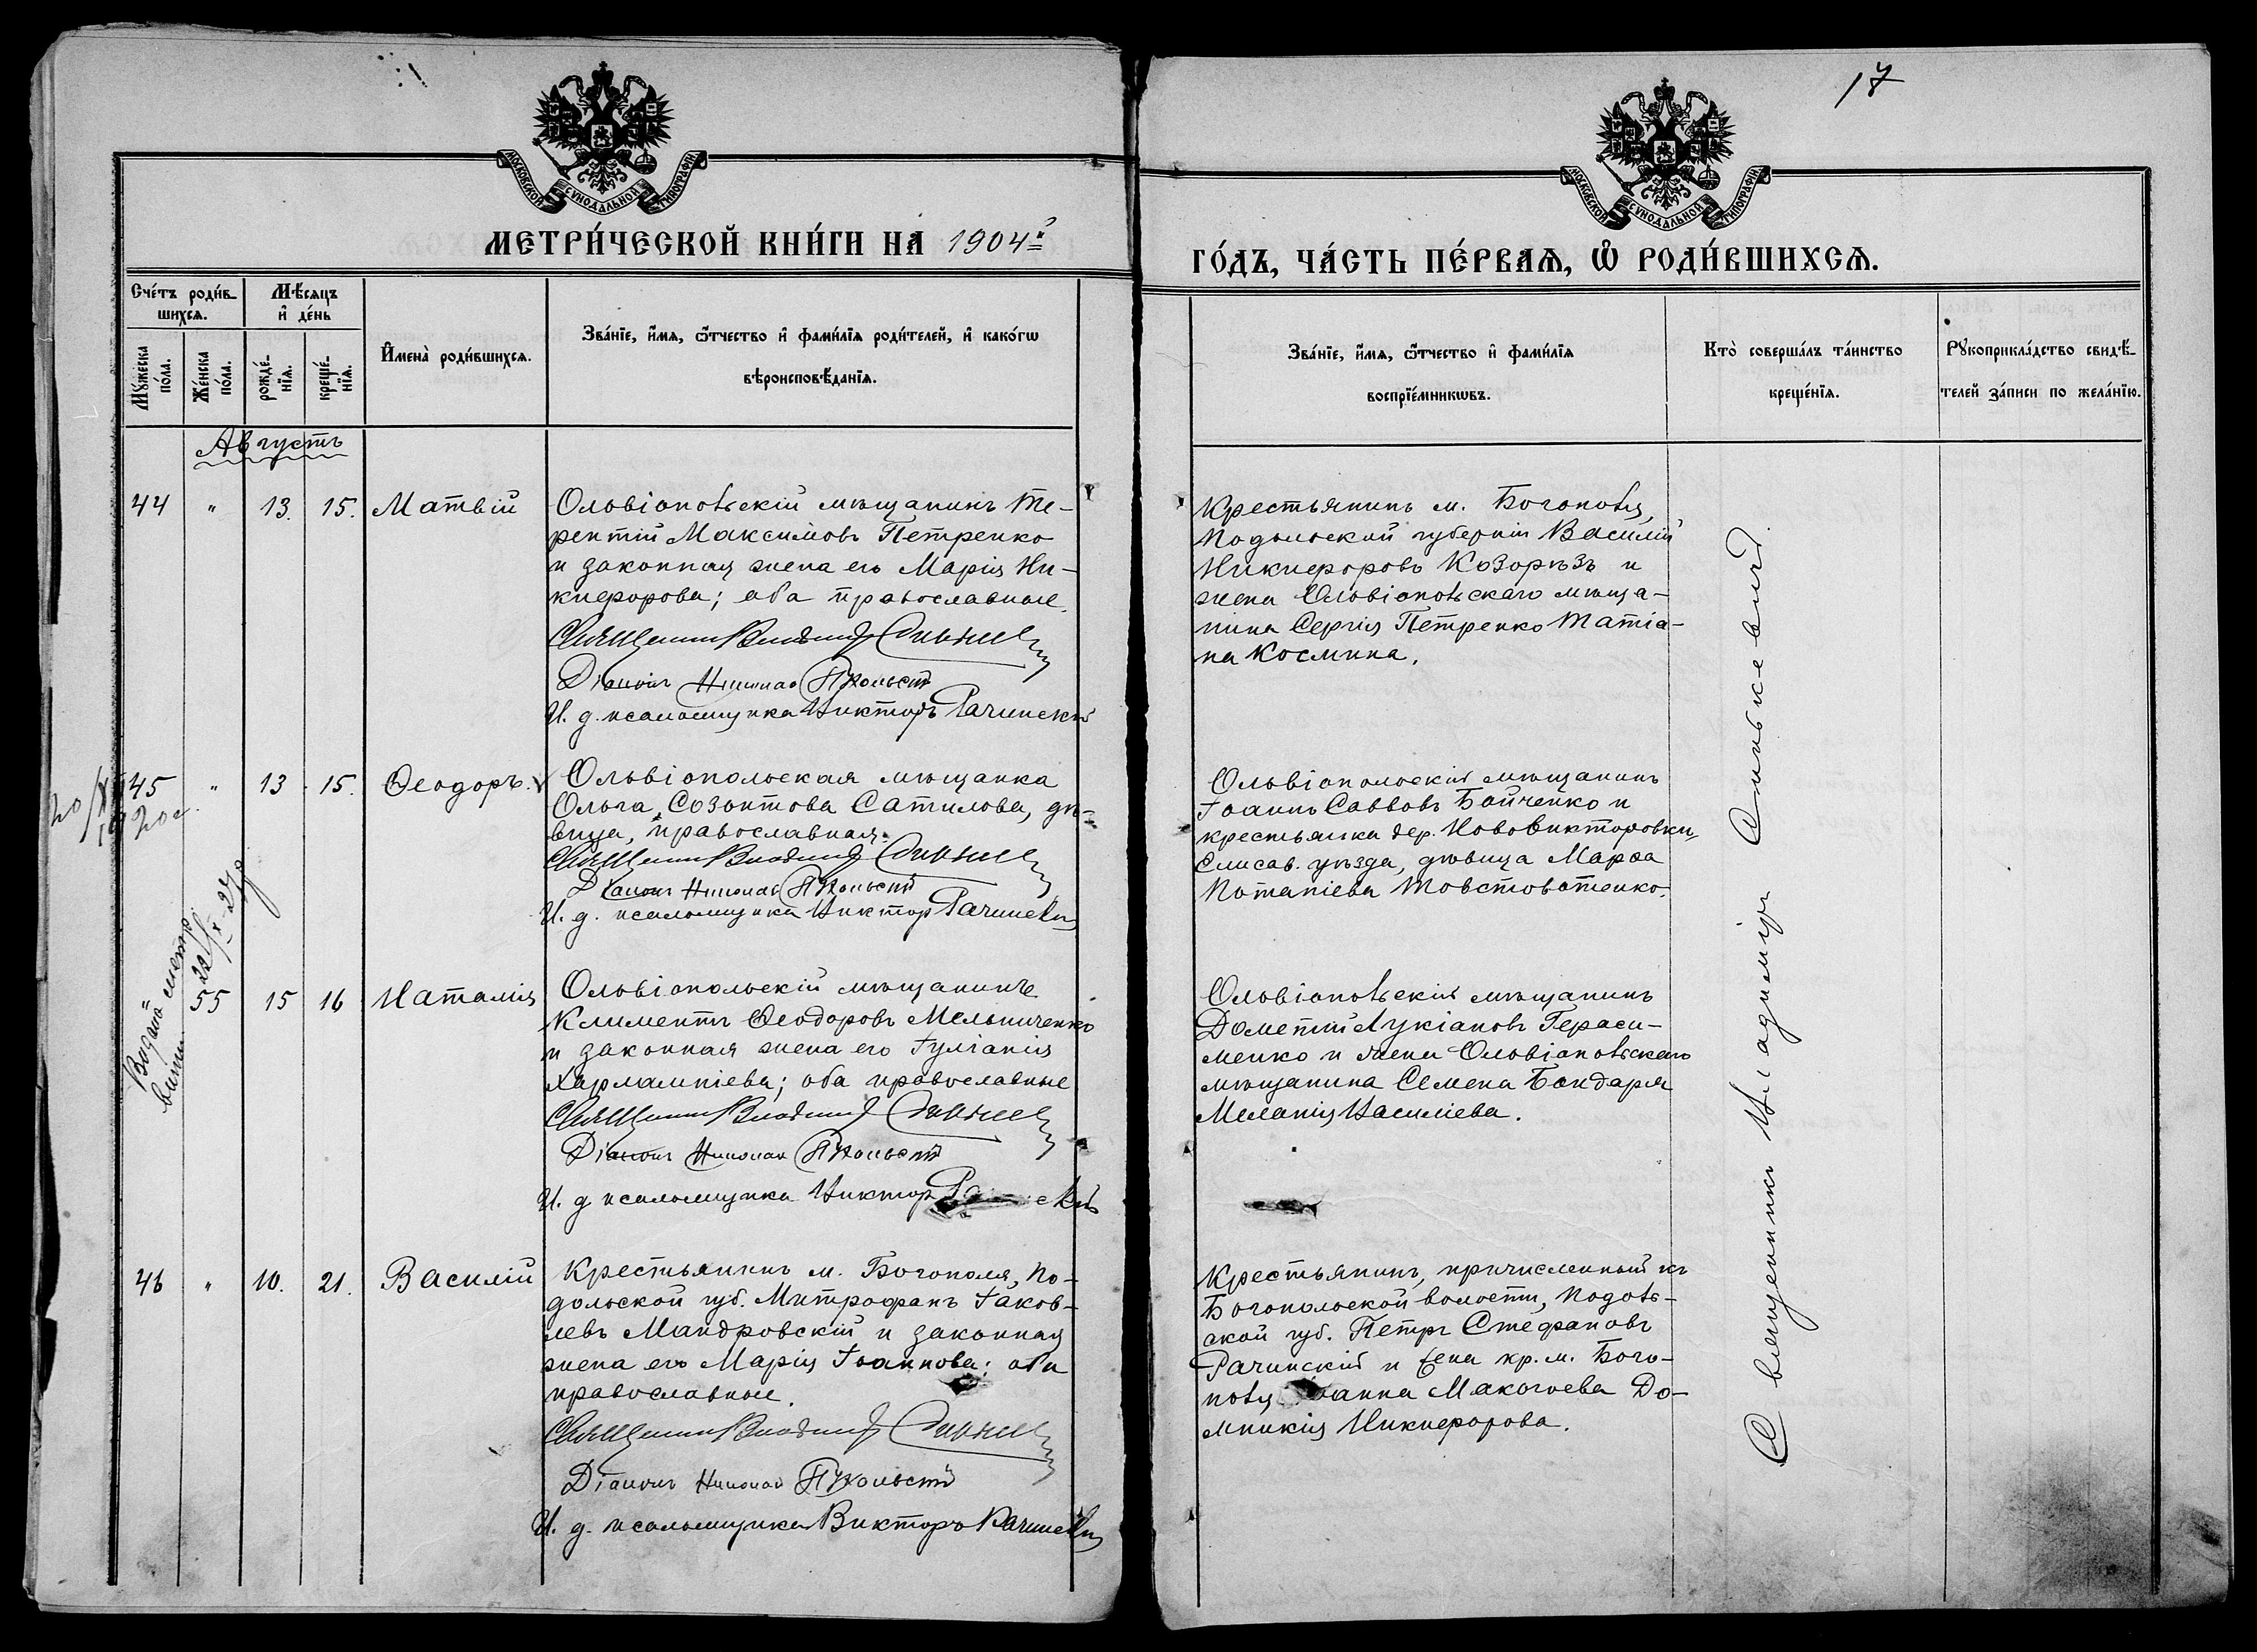 17
МОСКОВСКОЙ СУНОДАЛЬНОЙ ТИПОГРАФІИ
МОСКОВСКОЙ СУНОДАЛЬНОЙ ТИПОГРАФІИ
МЕТРИ́ЧЕСКОЙ КНИ́ГИ НА 1904й
ГО́ДЪ, ЧА́СТЬ ПЕ́РВАѦ, Ѡ҆ РОДИ́ВШИХСѦ.
Сче́тъ роди́в-
шихсѧ.
Мѣ́сѧцъ
и҆ де́нь
Мꙋ́жеска по́ла.
Же́нска по́ла.
рожде́-нїѧ.
креще́-нїѧ.
И҆мена̀ роди́вшихсѧ.
Зва́нїе, и҆́мѧ, ѻ҆́тчество и҆ фами́лїѧ роди́телей, и҆ како́гѡ
вѣроисповѣ́данїѧ.
Зва́нїе, и҆́мѧ, ѻ҆́тчество и҆ фами́лїѧ
воспрїе́мникѡвъ.
Кто̀ соверша́лъ та́инство
креще́нїѧ.
Рꙋкоприкла́дство свидѣ́-
телей за́писи по жела́нїю.
Августъ
44 " 13. 15. Матвій
Ольвіопольскій мѣщанинъ Те-
рентій Максимовъ Петренко
и законная жена его Марія Ни-
кифорова; оба православные.
Священникъ Владимір Синькевич
Діаконъ Николай
И. д. псаломщика Викторъ Рачинскій
Крестьянинъ м. Богополя,
Подольской губерніи Василій
Никифоровъ Козорѣзъ и
жена Ольвіопольскаго мѣща-
нина Сергія Петренко Татіа-
на Космина.
45 " 13 15. Ѳеодоръ.
Ольвіопольская мѣщанка
Ольга Созонтова Сатилова, дѣ-
вица, православная.
Священникъ Владимір Синькевич
Діаконъ Николай
И. д. псаломщика Виктор Рачинскій
Ольвіопольскій мѣщанинъ
Іоаннъ Саввовъ Бойченко и
крестьянка дер. Нововикторовки,
Елисав. уѣзда, дѣвица Марѳа
Потапіева Товстоватенко.
" 55 15 16 Наталія
Ольвіопольскій мѣщанинъ
Климентъ Ѳеодоровъ Мельниченко
и законная жена его Іуліанія
Харлампіева; оба православные
Священникъ Владимір Синькевич
Діаконъ Николай
И. д псаломщика Виктор
Ольвіопольскій мѣщанинъ
Дометій Лукіановъ Гераси-
менко и жена Ольвіопольскаго
мѣщанина Семена Бондаря
Меланія Василіева.
46 " 10. 21. Василій
Крестьянинъ м. Богополя, По-
дольской губ. Митрофанъ Іаков-
левъ Мандровскій и законная
жена его Марія Іоаннова; оба
православные.
Священникъ Владимір Синькевич
Діаконъ Николай
И. д. псаломщика Викторъ Рачинскій
Крестьянинъ, причисленный къ
Богопольской волости, Подоль-
ской губ. Петръ Стефановъ
Рачинскій и жена кр. м. Бого-
поля Іоанна Макогоева До-
мникія Никифорова.
Священникъ Владиміръ Синькевичъ.